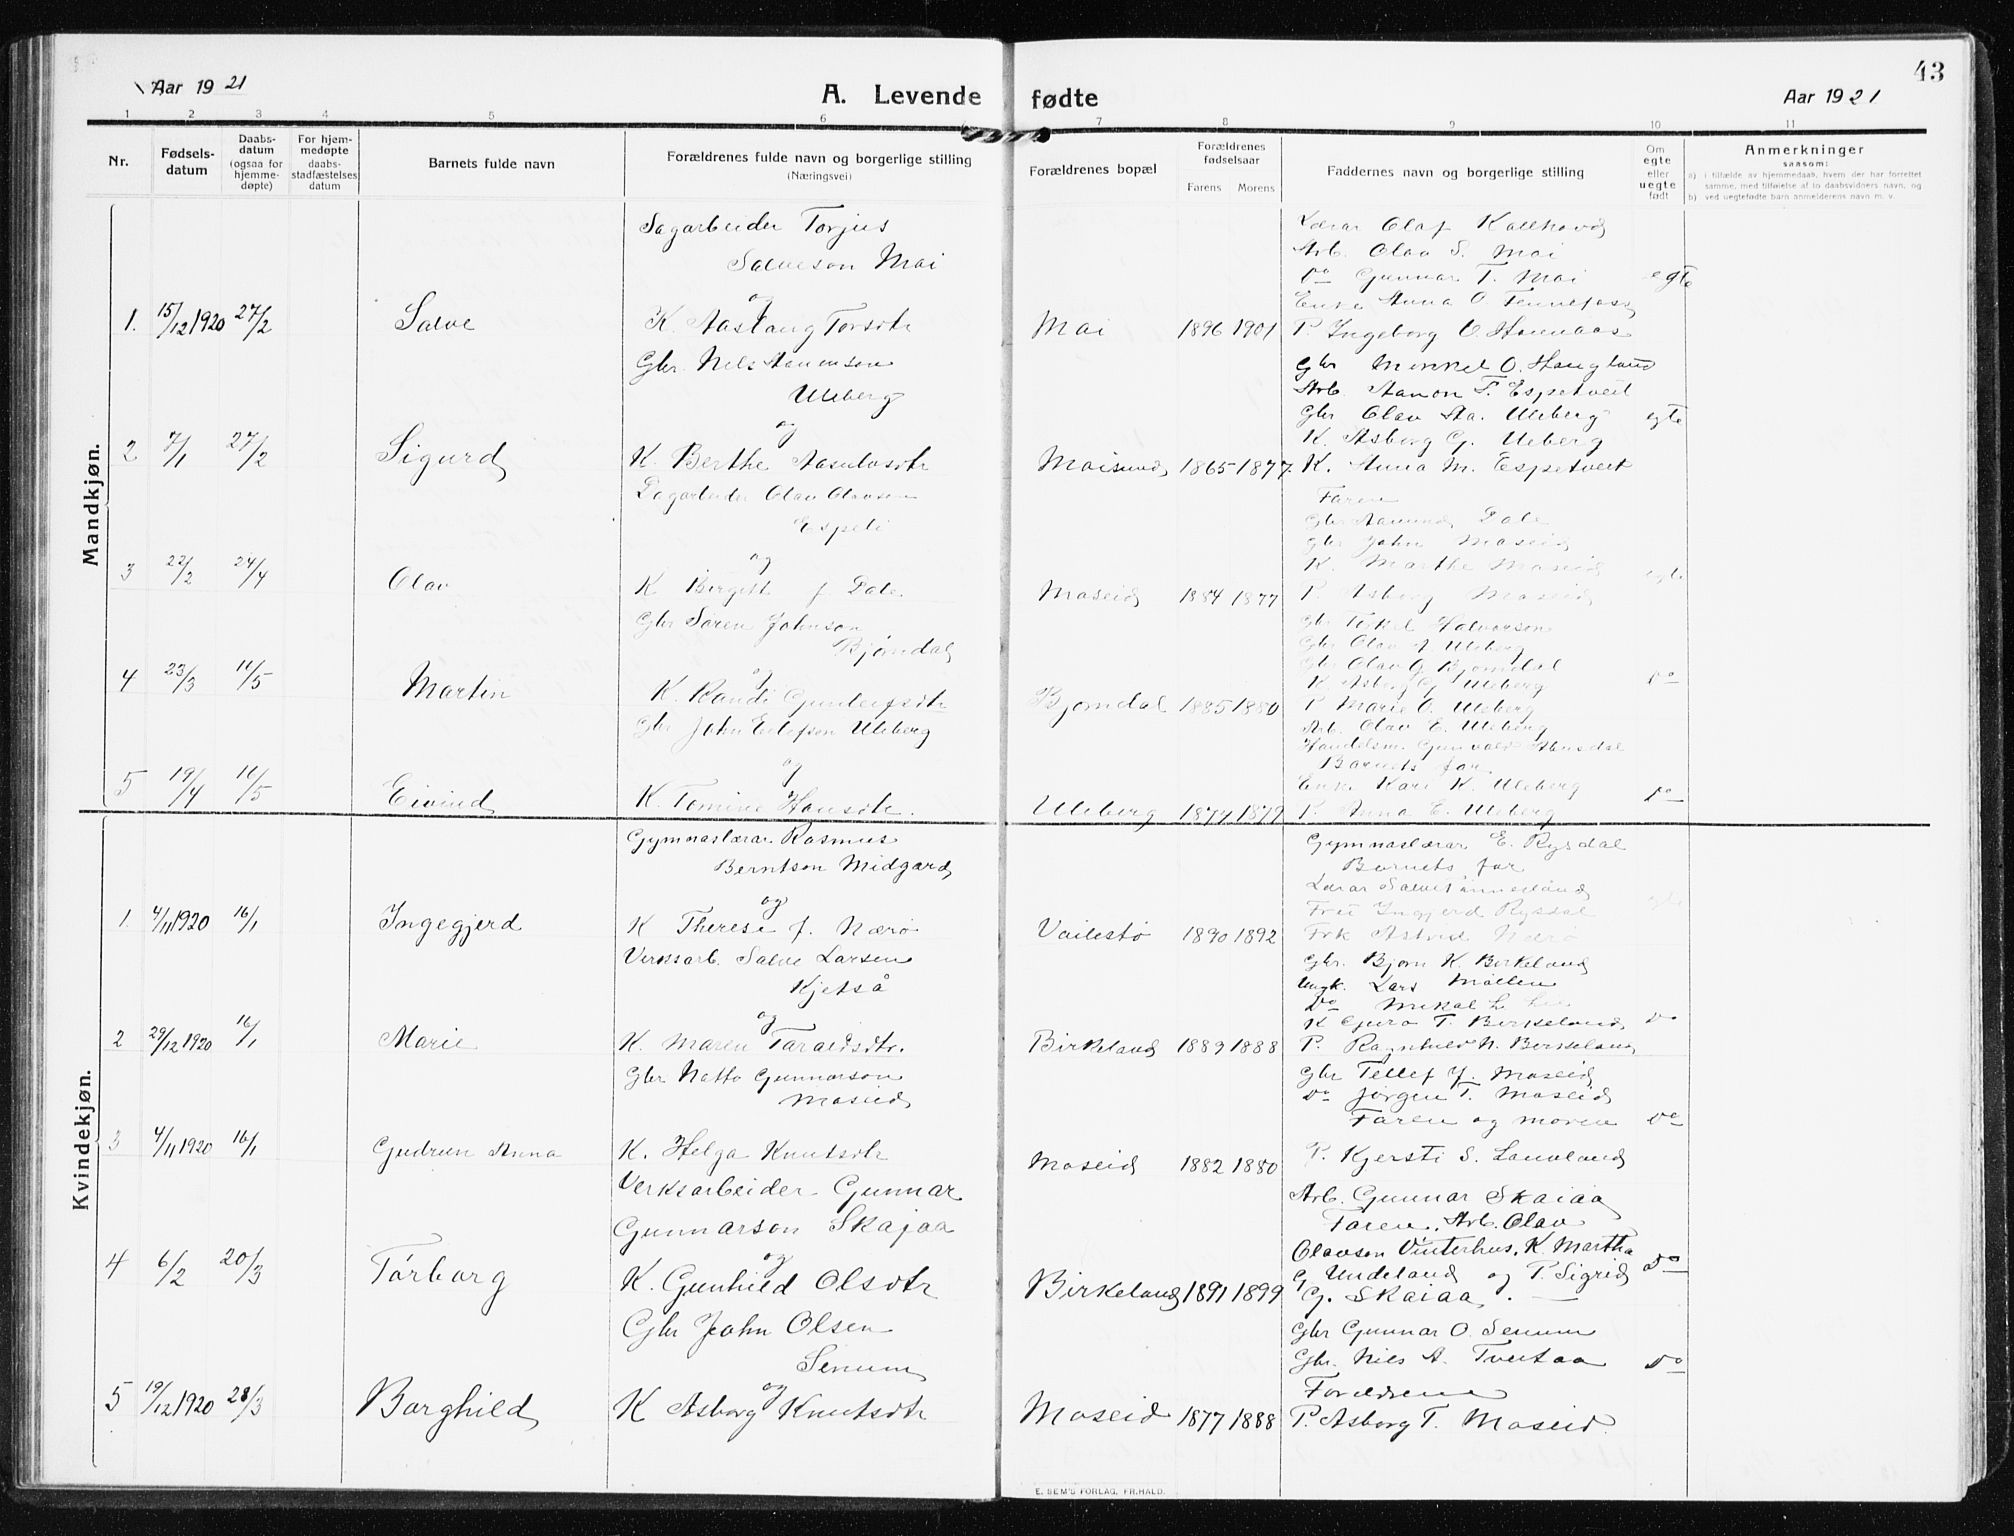 43
Aar 1921
A. Levende fødte
Aar 1921
1 2 3 4 5 6 7 8 9 10 11
Nr.
Fødsels-datum
Daabs-datum (ogsaa for hjemme-døpte)
For hjem-medøpte daabs-stadfæstelses datum
Barnets fulde navn
Forældrenes fulde navn og borgerlige stilling
(Næringsvei)
Forældrenes bopæl
Forældrenes fødselsaar
Farens Morens
Faddernes navn og borgerlige stilling
Om egte eller uegte født
Anmerkninger
saasom:
a) i tilfælde av hjemmedaab, hvem der har forrettet samme, med tilføielse af to daabsvidners navn, og
b) ved uegtefødte barn anmelderens navn m. v.
Mandkjøn.
Sagarbeider Torjus
Salveson Mai
og
1. 15/12 1920 27/2 Salve K. Aaslaug Torsdtr Mai 1896 1901
Lærar Olaf Kallhovd
Arb. Olav S. Mai
Do Gunnar T. Mai egte
Enke Anna O.
P. Ingeborg O.
Gbr. Nils Aanonson
Uleberg
og
2 7/1 27/2 Sigurd K. Berthe Aasulvsdtr Moisund 1865 1877
Gbr O. Haugland
Arb. Aanon F. Espetveit
Gbr Olav Aa. Uleberg egte
K. Asborg G. Uleberg
K. Anna M. Espetveit
Dagarbeider Olav Olavsen
Espeli
og
3 22/2 24/4 Olav K Birgit f. Dale Moseid 1884 1877
Faren
Gbr Aamund Dale
gbr John Moseid
K. Marthe Moseid egte
P. Asborg Moseid
Gbr Søren Johnson
Bjorndal
og
4 23/3 11/5 Martin K. Randi Gunleifsdtr Bjorndal 1885 1880
Gbr Halvorson
Gbr Olav A. Uleberg
Gbr Olav G Bjorndal
K Asborg G. Uleberg Do
P Marie O. Uleberg
Gbr John Eilefson Uleberg
og
5 19/4 11/5 Eivind K. Tomine Hansdtr. Uleberg 1874 1879
Arb. Olav E. Uleberg
Handelsm. Gunvald
Barnets far
Enke Kari K. Uleberg Do
P. Anna E. Uleberg
Kvindekjøn.
Gymnaslærar Rasmus
Berntson Midgard
og
1. 4/11 1920 16/1 Ingegjerd K Therese f. Nærø Vailestø 1890 1892
Gymnaslærar E. Rysdal
Barnets far
Lærar
Fru Ingjerd Rysdal egte
Frk Astrid Nærø
Verksarb. Salve Larsen
Kjetså
og
2 29/12 1920 16/1 Marie K. Maren Taraldsdtr. Birkeland 1889 1888
Gbr. Bjorn K. Birkeland
Ungk. Lars Mollen
Do Mikal L.
K Guro T. Birkeland Do
P. Ragnhild N. Birkeland
Gbr Natto Gunnarson
Moseid
3 4/11 1920 16/1 Gudrun Anna K. Helga Knutsdtr Moseid 1882 1880
Gbr Tellef Y. Moseid
Do Jørgen T. Moseid
Faren og moren Do
P. Kjersti S. Lauvland
Verksarbeider Gunnar
Gunnarson Skajaa
og
4 6/2 20/3 Torborg K. Gunhild Olsdtr Birkeland 1891 1899
Arb. Gunnar Skaiaa
Faren, Arb. Olav
Olavson Vinterhus, K. Martha Do
G Undeland og P. Sigrid
G. Skaiaa.
Gbr John Olsen
Senum
og
5 19/12 1920 28/3 Borghild K Asborg Knutsdtr Moseid 1877 1888
Gbr Gunnar O. Senum
Gbr. Nils A. Tveitaa Do
Foreldrene
P. Asborg T. Moseid.
E. SEM'S FORLAG, FR.HALD.